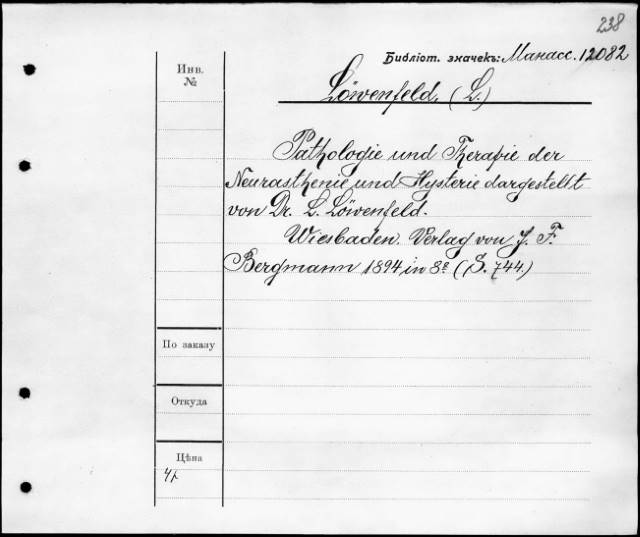 238
Библіот. значекъ: Манасс. 12082
Инв.
№
Löwenfeld. (L.)
Pathologie und Therapie der
Neurasthenie und Hysterie dargestellt
von Dr. L. Löwenfeld.
Wiesbaden. Verlag von J. F.
Bergmann 1894 in 8º (S. 744.)
По заказу
Откуда
Цѣна